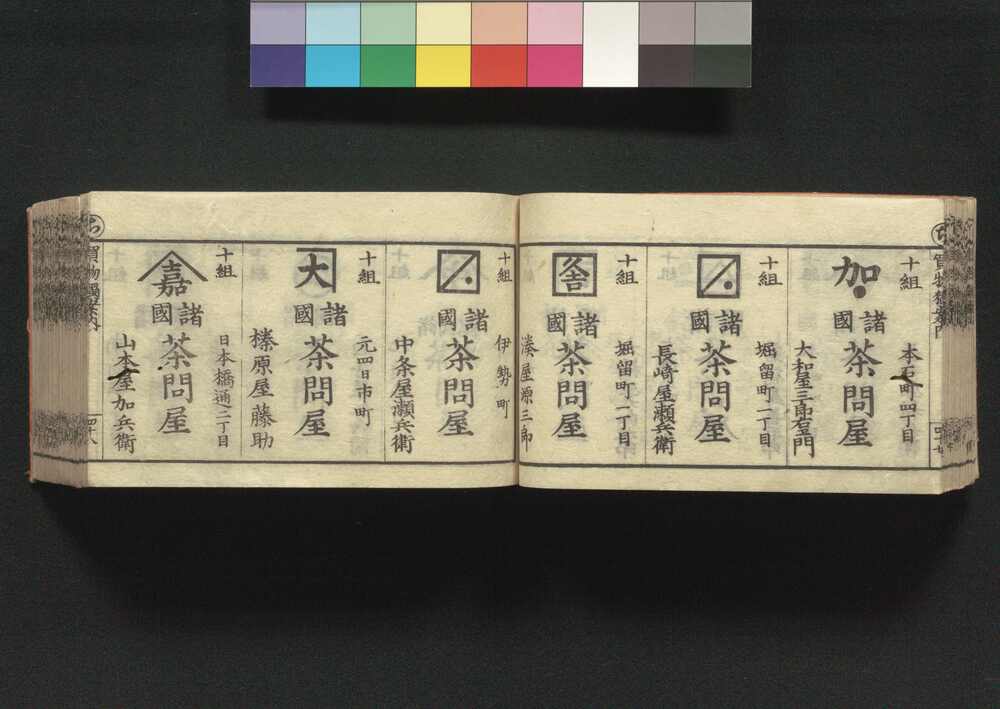 十組
加
諸國
茶問屋
本石町四丁目
大和屋三郎右衛門
十組
諸國
茶問屋
堀留町一丁目
長崎屋瀬兵衛
十組
諸國
茶問屋
堀留町一丁目
湊屋源三郎
十組
諸國
茶問屋
伊勢町
中条屋瀬兵衛
十組
大
諸國
茶問屋
元四日市町
榛原屋藤助
十組
嘉
諸國
茶問屋
日本橋通二丁目
山本屋加兵衛
四十八